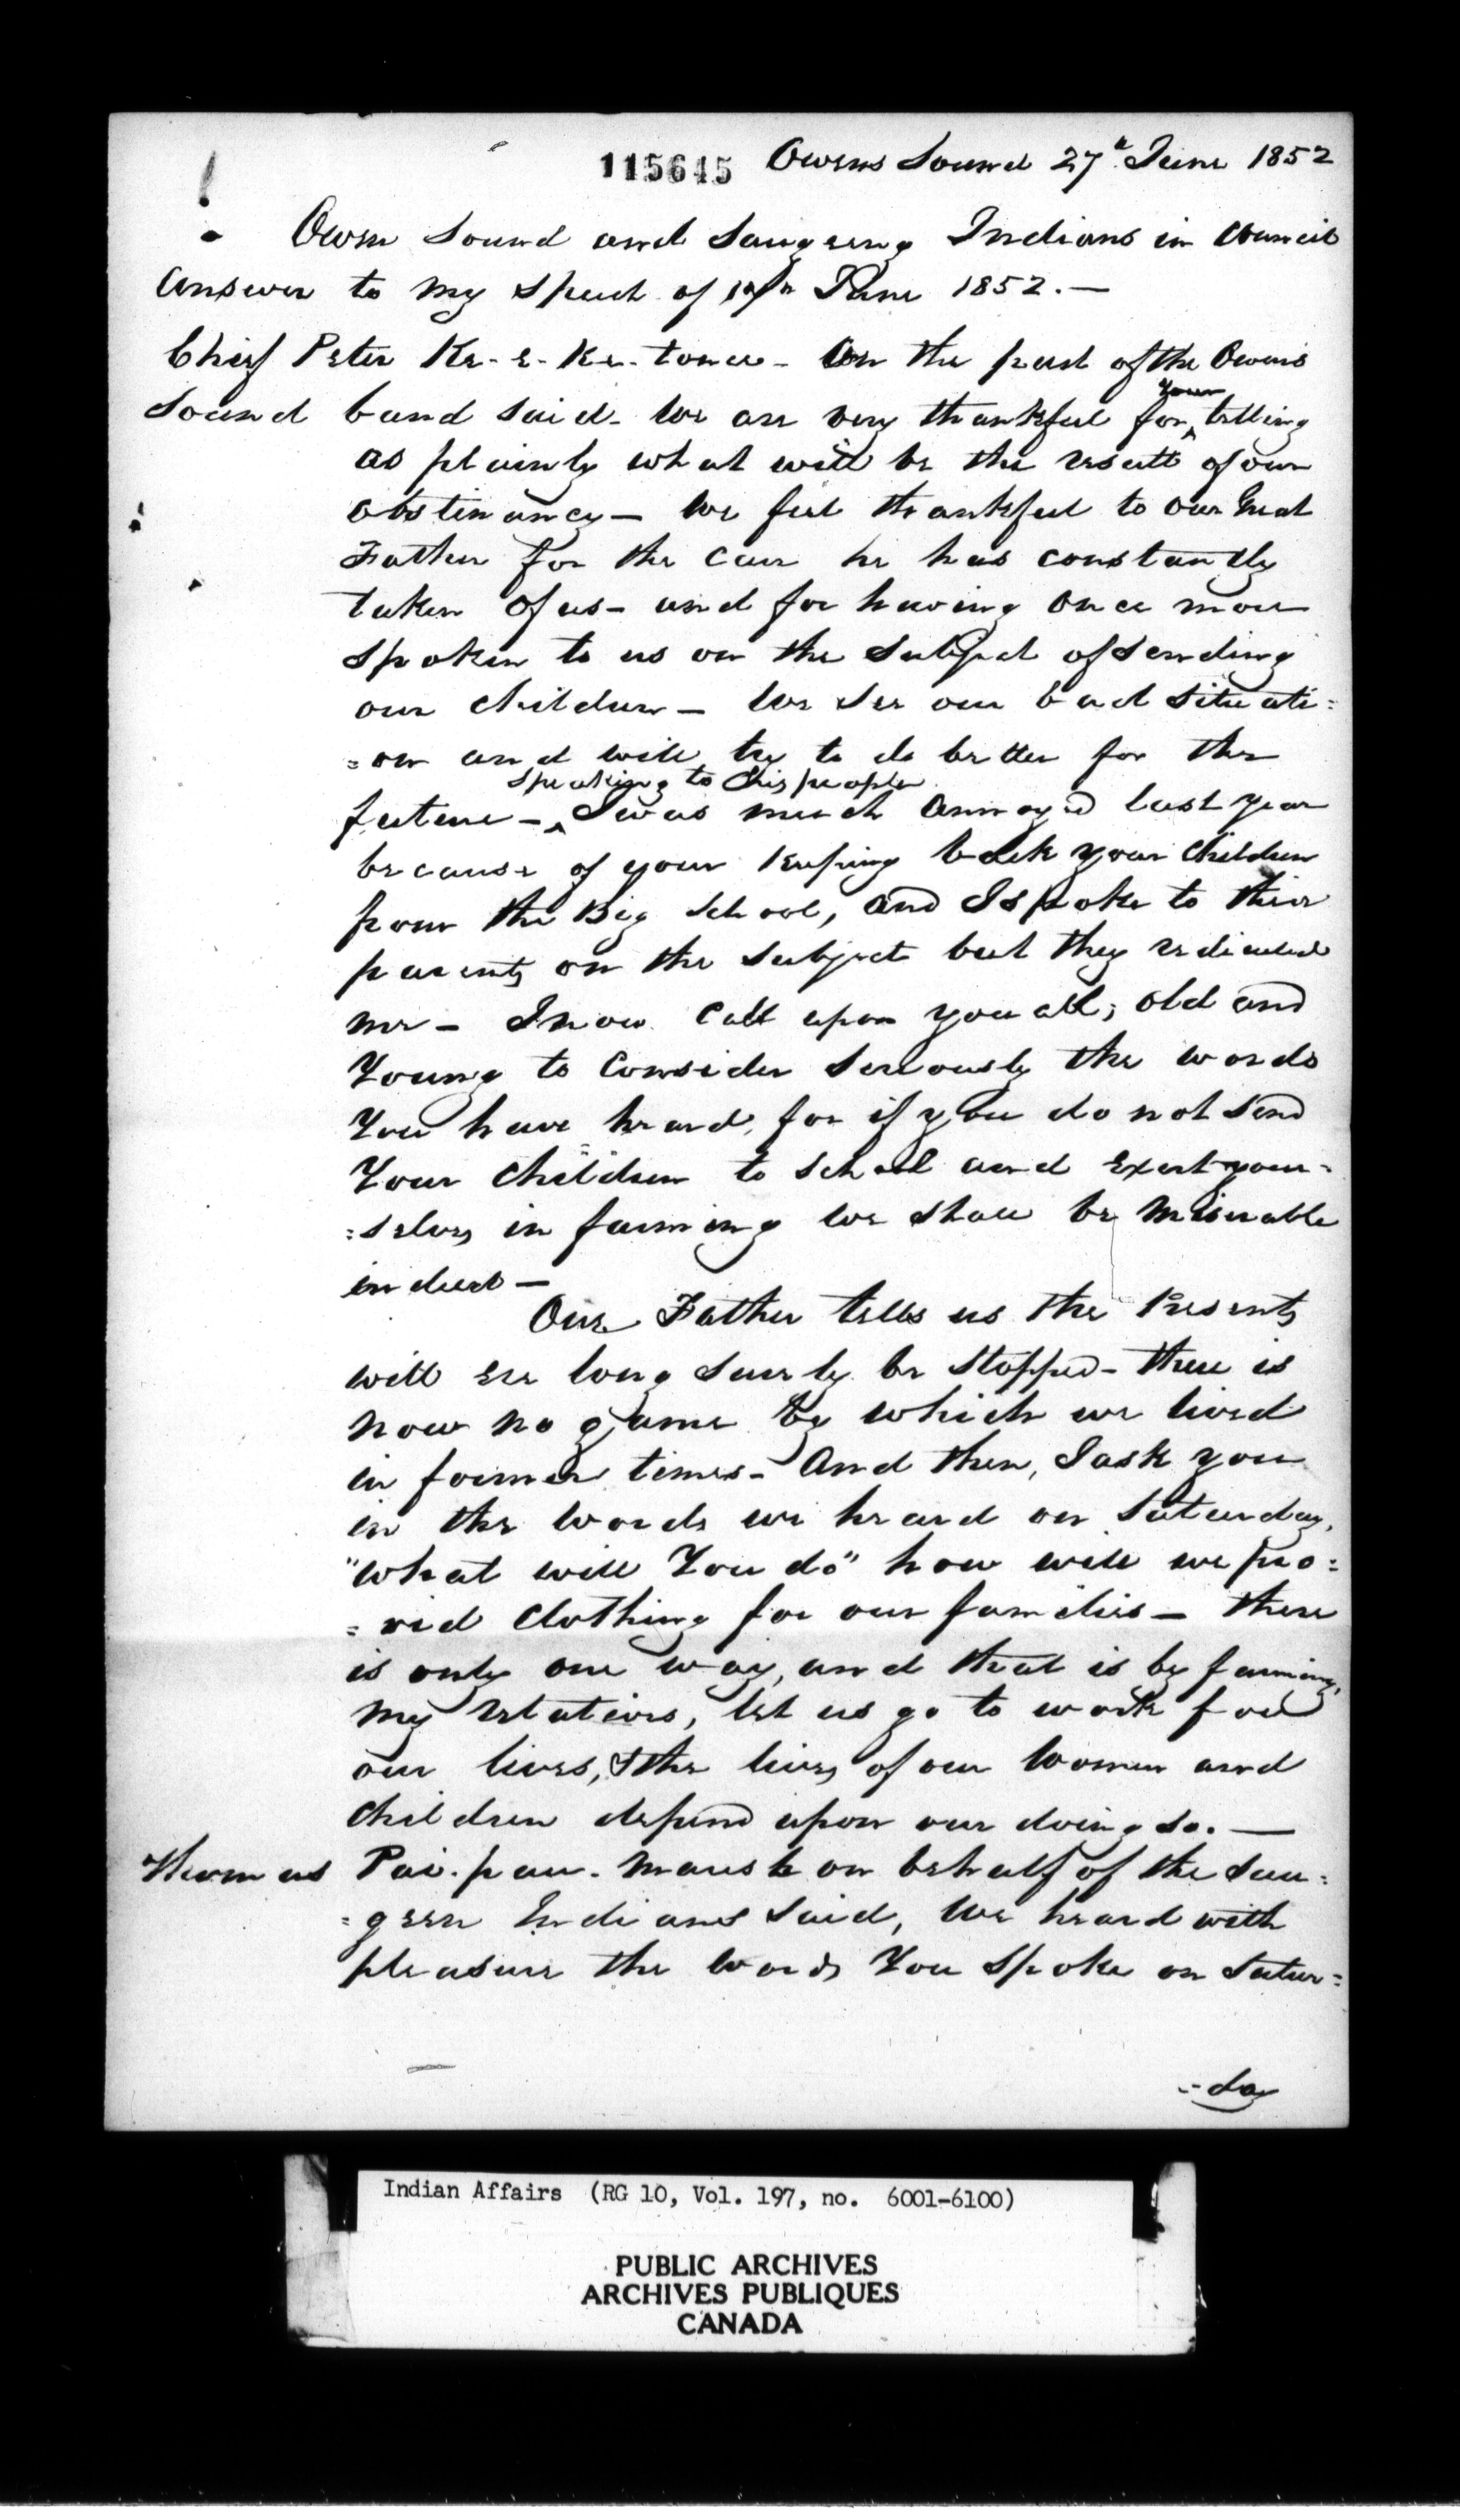 115645 Owens Sound 27th June 1852
Owen Sound and Saugeeng Indians in Council
Answer to my Speech of June 1852.—
Chief Peter Ke-e-ke-tonce - On the part of the Owens
Sound band said - We are very thankful for your telling
us plainly what will be the result of our
obstinancy — We feel thankful to our Great
Father for the care he has constantly
taken of us - and for having once more
spoken to us on the subject of sending
our children — We see our bad situati=
=on and will try to do better for the
speaking to his people
future — I was much annoyed last year
because of your keeping back your children
from the Big School, and I spoke to their
parents on the subject but they rediculed
me — I now call upon you all; old and
Young to Consider seriously the words
You have heard, for if you do not send
Your children to school and exert your=
=selves in farming we shall be miserable
indeed —
Our Father tells us the Presents
will ere long surely be stopped - there is
now no game by which we lived
in former times - And then, I ask you
in the words we heard on Saturday,
"What will You do" how will we pro=
=vid clothing for our families — there
is only one way, and that is by farming,
My relations, let us go to work for
our lives, & the lives of our women and
children depend upon our doing so. —
Thomas Pai-pau-maush on behalf of the Sau=
=geen Indians said, We heard with
pleasure the words You spoke on Satur=
=day
Indian Affairs (RG 10, Vol. 197, no. 6001-6100)
PUBLIC ARCHIVES
ARCHIVES PUBLIQUES
CANADA